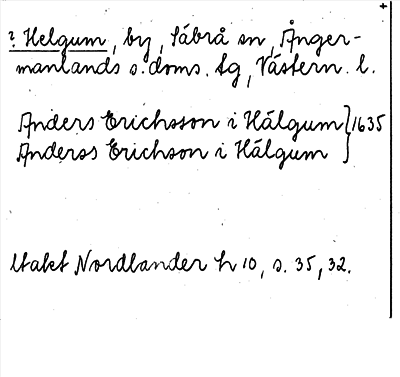 ? Helgum, by, Säbrå sn, Ånger-
manlands s. doms. tg, Västern. l.
Anders Erichsson i Hälgum } 1635
Anderss Erichson i Hälgum
Utakt Nordlander h 10, s. 35, 32.